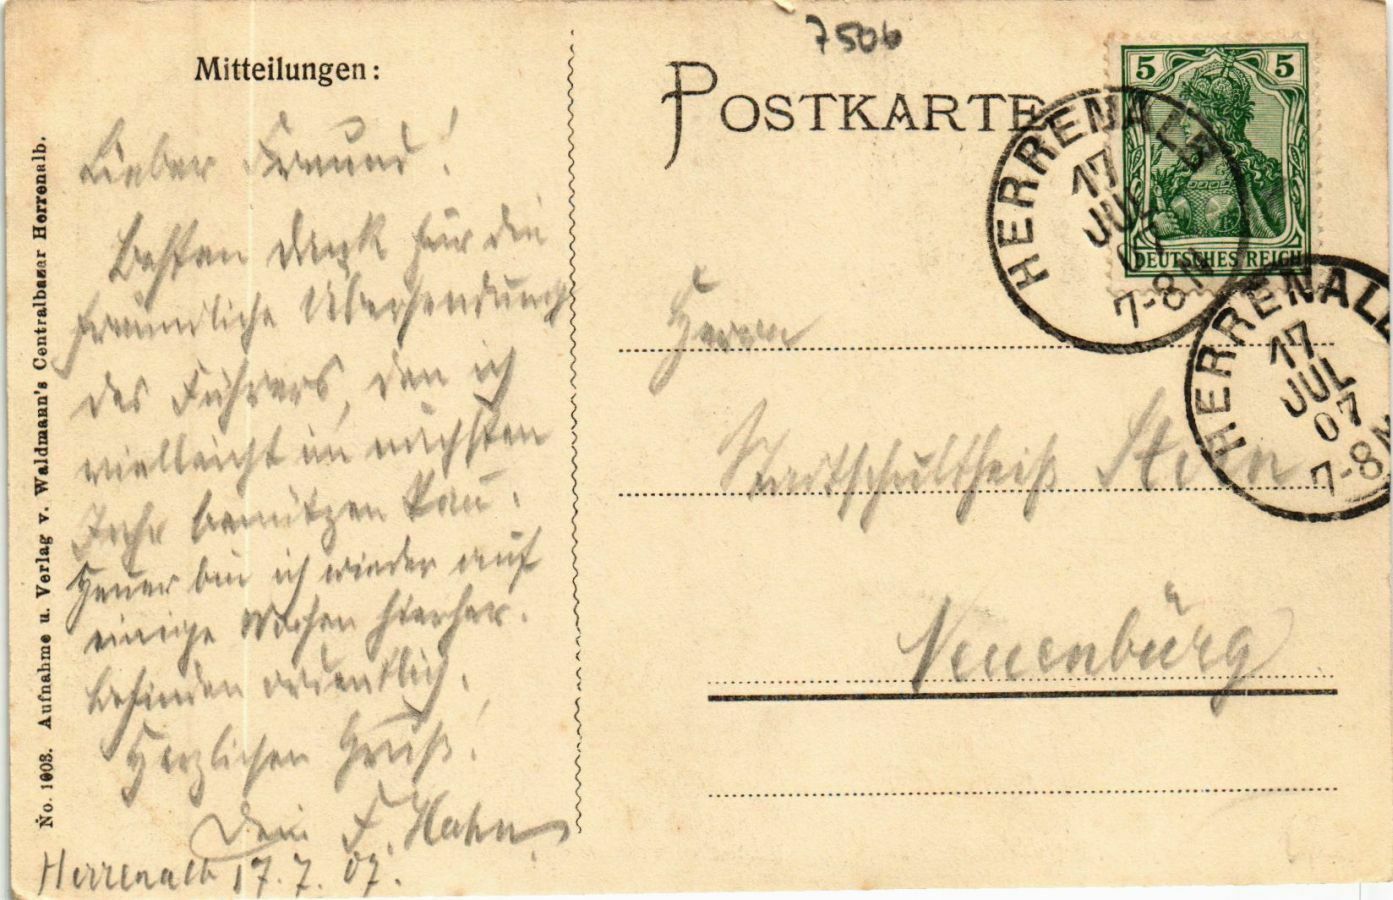 Mitteilungen:
Lieber Freund!
Besten Dank für die
freundliche Übersendung
des Führers, den ich
vielleicht im nächsten
Jahr benützen kann.
Heuer bin ich wieder auf
einige Wochen hierher.
Befinden ordentlich.
Herzlichen Gruß!
Dein F. Hahn
Herrenalb 17.7.07.
No. 1903. Aufnahme u. Verlag v. Waldmann's Centralbazar Herrenalb.
7506
POSTKARTE
5 5
DEUTSCHES REICH
HERRENALB
17
JUL
07
7-8N
HERRENALB
17
JUL
07
7-8N
Herrn
Stadtschultheiß Stirn
Neuenbürg